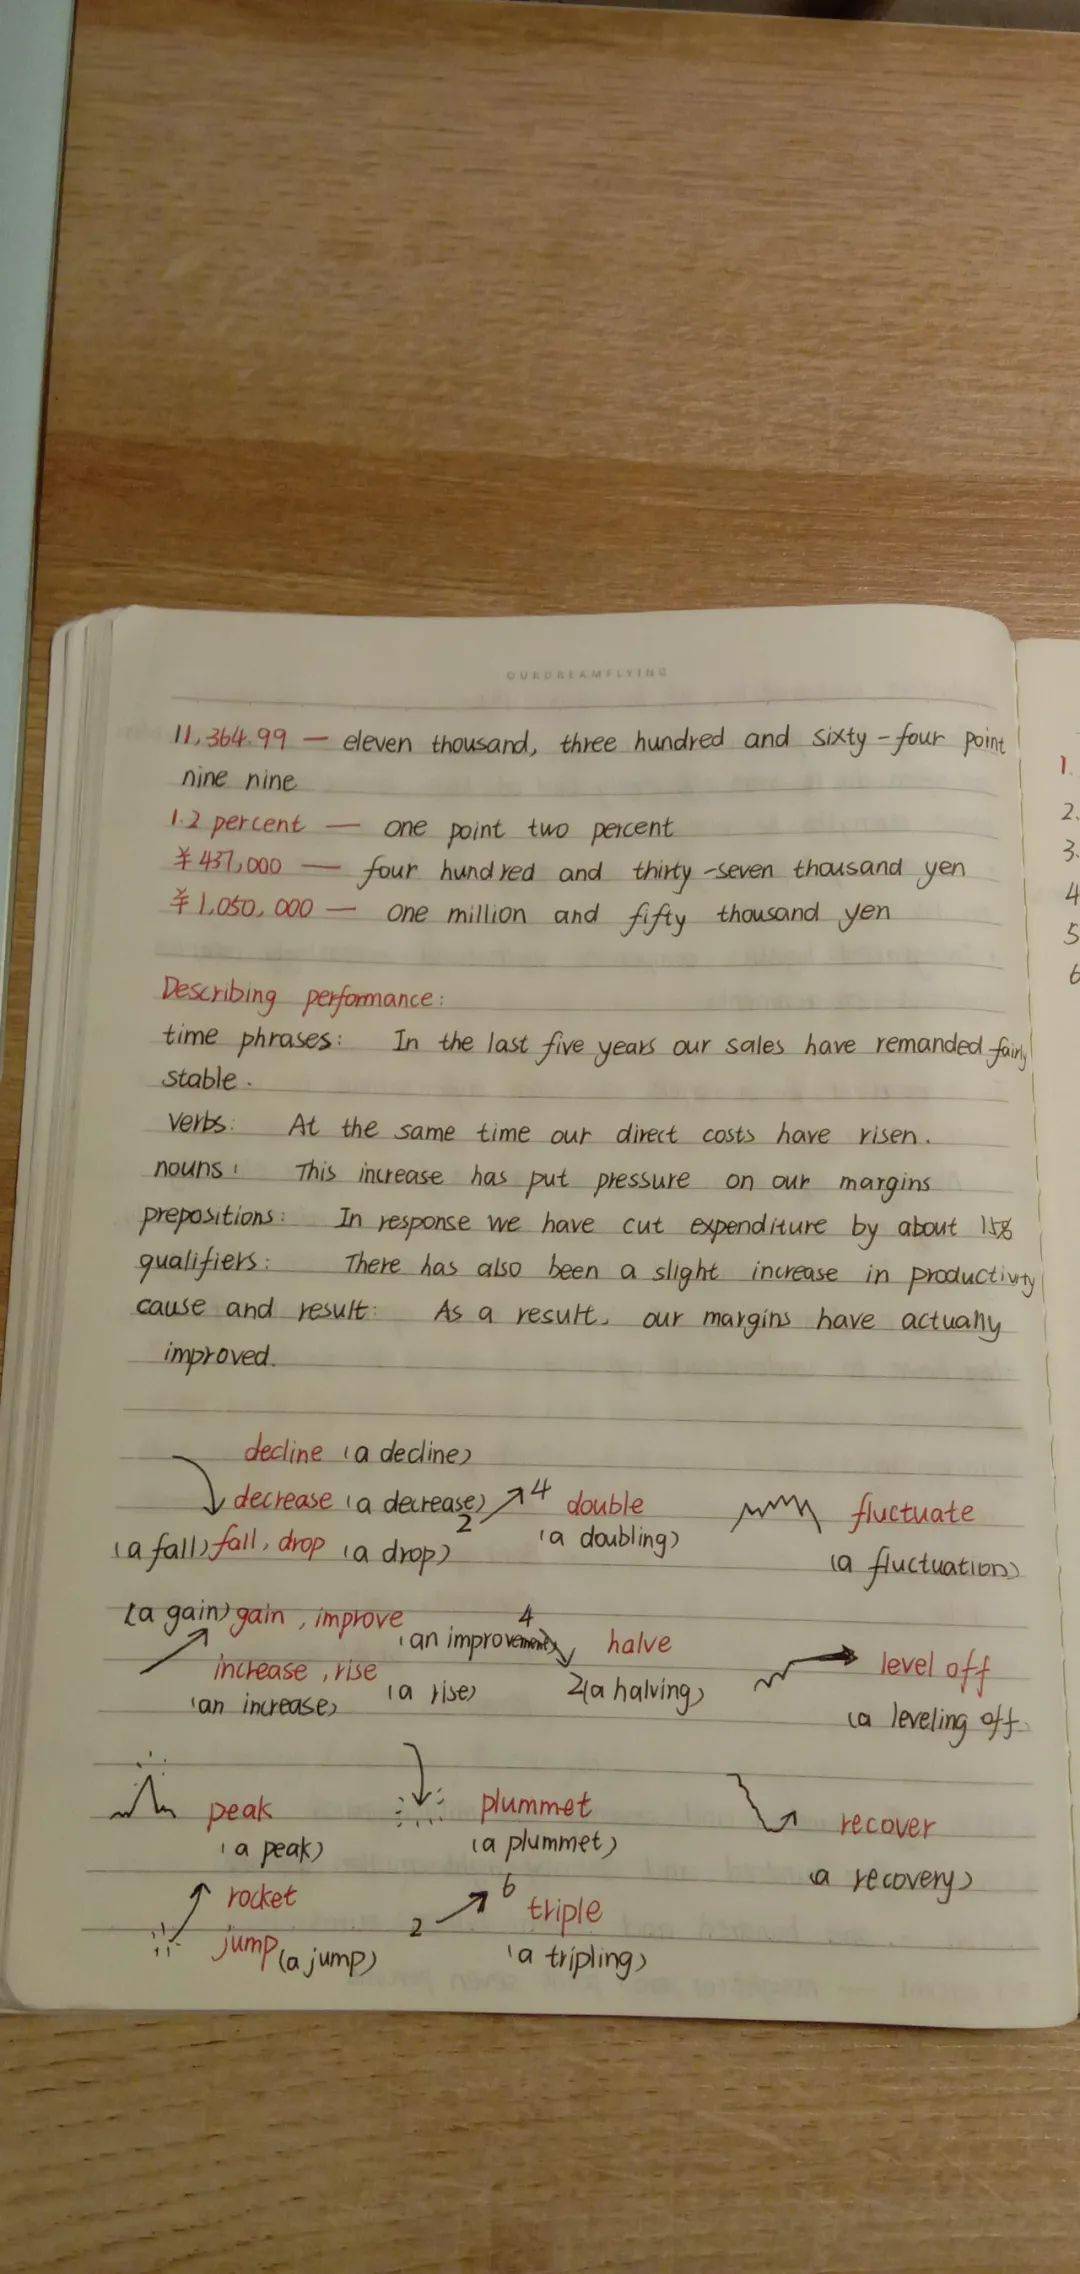 OURDREAMFLYING
11,364.99 — eleven thousand, three hundred and sixty-four point
nine nine
1.2 percent — one point two percent
¥437,000 — four hundred and thirty-seven thousand yen
¥1,050,000 — one million and fifty thousand yen
Describing performance:
time phrases: In the last five years our sales have remanded fairly
stable.
verbs: At the same time our direct costs have risen.
nouns: This increase has put pressure on our margins
prepositions: In response we have cut expenditure by about 15%
qualifiers: There has also been a slight increase in productivity
cause and result: As a result, our margins have actually
improved.
decline (a decline)
decrease (a decrease) 2 4 double fluctuate
(a fall) fall, drop (a drop) (a doubling) (a fluctuation)
(a gain) gain, improve (an improvement) 4 halve
increase, rise 2 (a halving) level off
(an increase) (a rise) (a leveling off
peak plummet recover
(a peak) (a plummet) (a recovery)
rocket 2 6 triple
jump (a jump) (a tripling)
1.
2.
3.
4
5
6